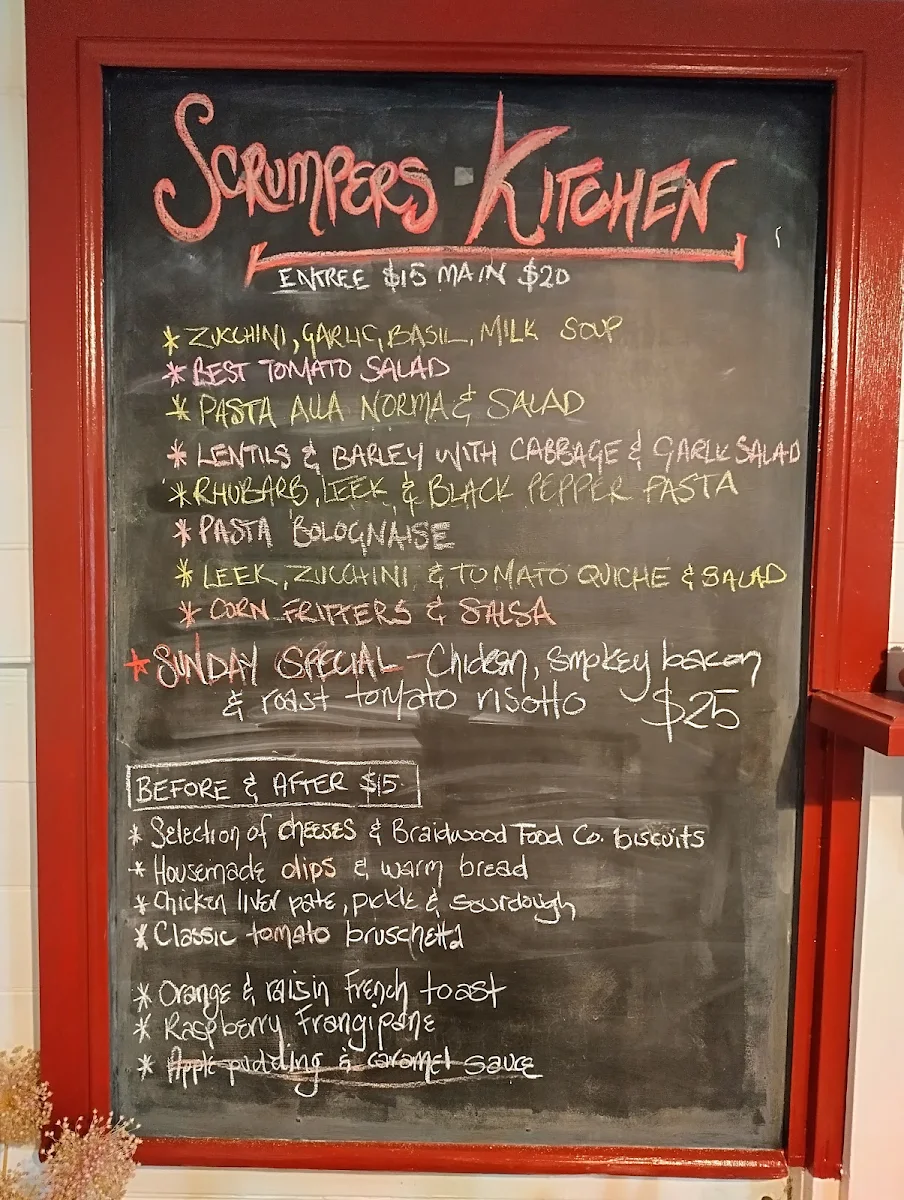 SCRUMPERS KITCHEN
ENTREE $15 MAIN $20
* ZUCCHINI, GARLIC, BASIL, MILK SOUP
* BEST TOMATO SALAD
* PASTA ALLA NORMA & SALAD
* LENTILS & BARLEY WITH CABBAGE & GARLIC SALAD
* RHUBARB, LEEK & BLACK PEPPER PASTA
* PASTA BOLOGNAISE
* LEEK, ZUCCHINI & TOMATO QUICHE & SALAD
* CORN FRITTERS & SALSA
* SUNDAY SPECIAL - Chicken, smokey bacon
& roast tomato risotto $25
BEFORE & AFTER $15
* Selection of cheeses & Braidwood Food Co. biscuits
* Housemade dips & warm bread
* Chicken liver pate, pickle & sourdough
* Classic tomato bruschetta
* Orange & raisin French toast
* Raspberry Frangipane
* Apple pudding & caramel sauce